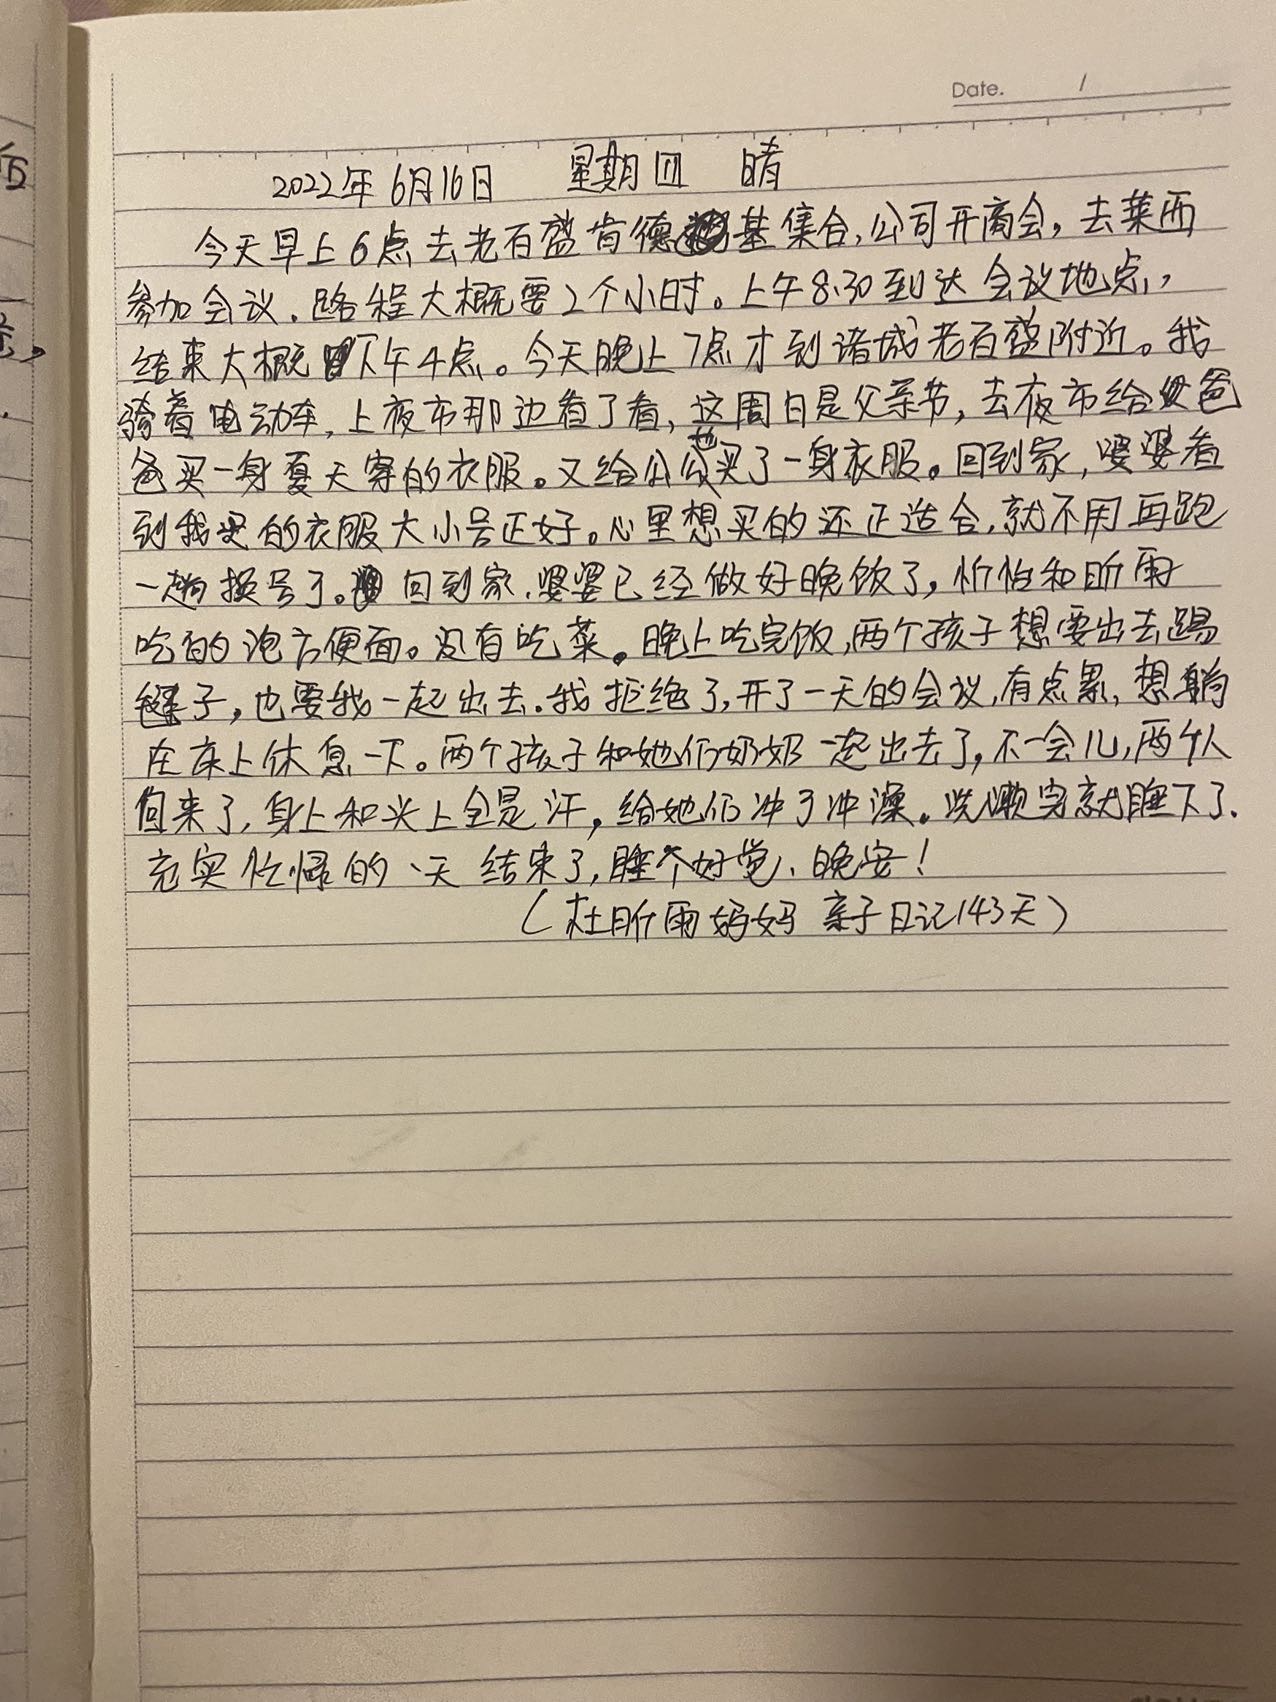 Date. /
2022年6月16日 星期四 晴
今天早上6点去老百盛肯德基集合,公司开商会,去莱西
参加会议。路程大概要2个小时。上午8:30到达会议地点,
结束大概下午4点。今天晚上7点才到诸城老百盛附近。我
骑着电动车,上夜市那边看了看,这周日是父亲节,去夜市给爸
爸买一身夏天穿的衣服。又给公公也买了一身衣服。回到家,婆婆看
到我买的衣服大小号正好。心里想买的还正适合,就不用再跑
一趟换号了。回到家,婆婆已经做好晚饭了,忻怡和昕雨
吃的泡方便面。没有吃菜。晚上吃完饭,两个孩子想要出去踢
毽子,也要我一起出去。我拒绝了,开了一天的会议,有点累,想躺
在床上休息一下。两个孩子和她们奶奶一起出去了,不一会儿,两个人
回来了,身上和头上全是汗,给她们冲了冲澡。洗漱完就睡下了.
充实忙碌的一天结束了,睡个好觉、晚安!
(杜昕雨妈妈 亲子日记143天)